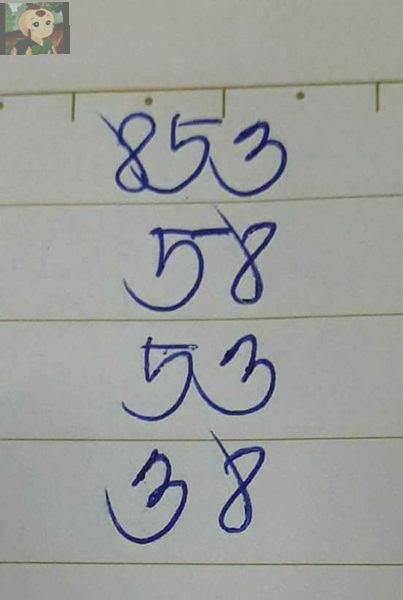 853
58
53
38